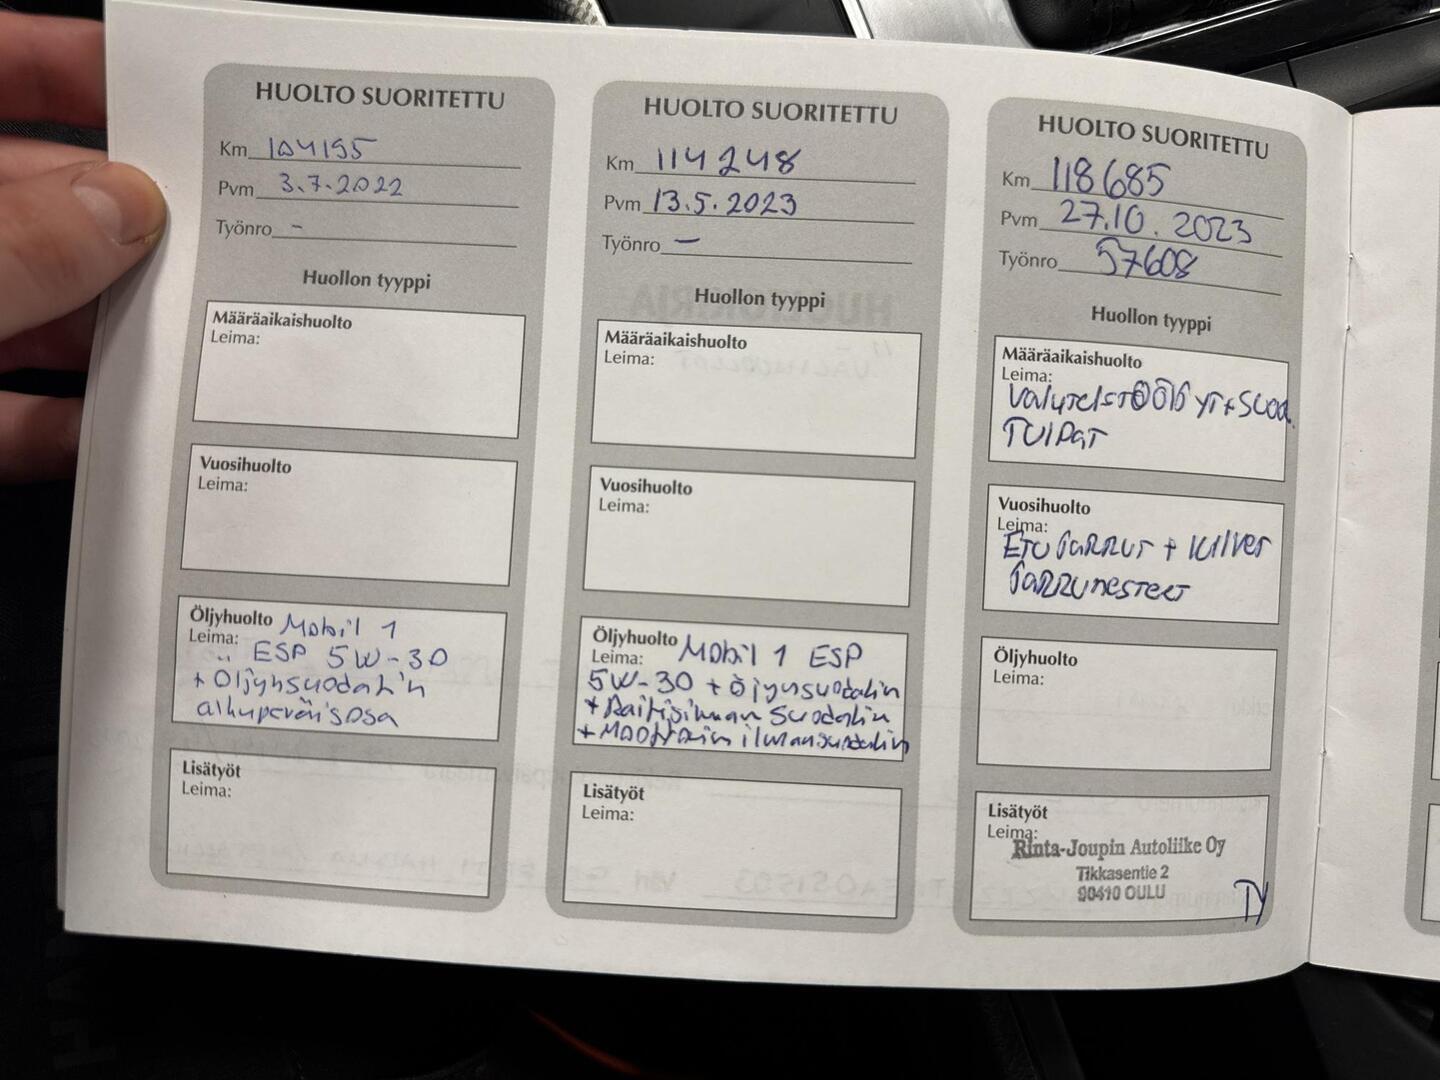 HUOLTO SUORITETTU
Km 104195
Pvm 3.7.2022
Työnro -
Huollon tyyppi
Määräaikaishuolto
Leima:
Vuosihuolto
Leima:
Öljyhuolto Mobil 1
Leima: ESP 5W-30
+ Öljynsuodatin
alkuperäisosa
Lisätyöt
Leima:
HUOLTO SUORITETTU
Km 114248
Pvm 13.5.2023
Työnro -
Huollon tyyppi
Määräaikaishuolto
Leima:
Vuosihuolto
Leima:
Öljyhuolto Mobil 1 ESP
Leima:
5W-30 + öljynsuodatin
+ Raitisilman suodatin
+ Moottorin ilmansuodatin
Lisätyöt
Leima:
HUOLTO SUORITETTU
Km 118685
Pvm 27.10.2023
Työnro 57608
Huollon tyyppi
Määräaikaishuolto
Leima:
TULPAT
Vuosihuolto
Leima:
ETUJARRUT + KILVET
JARRUNESTEET
Öljyhuolto
Leima:
Lisätyöt
Leima:
Rinta-Joupin Autoliike Oy
Tikkasentie 2
90410 OULU
TY